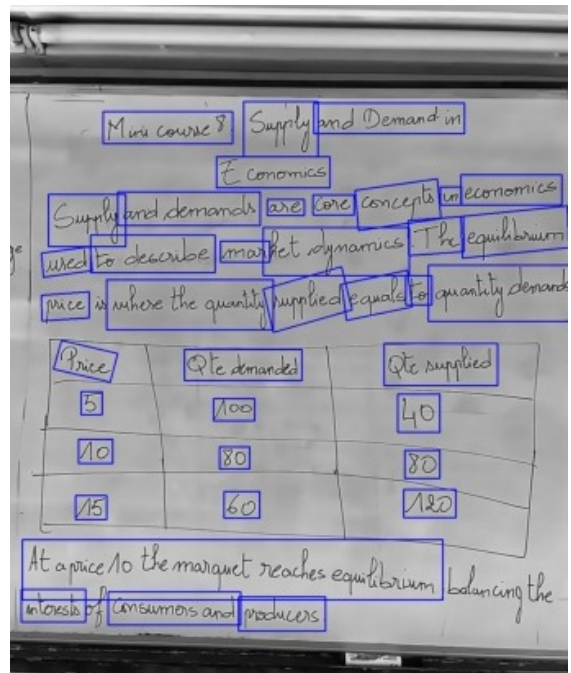 Mini course 8 Supply and Demand in
Economics
Supply and demands are core concepts in economics
used to describe market dynamics. The equilibrium
price is where the quantity supplied equals to quantity demands
Price Qte demanded Qte supplied
5 100 40
10 80 80
15 60 120
At a price 10 the marquet reaches equilibrium balancing the
interests of consumers and producers